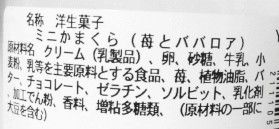 名称 洋生菓子
ミニかまくら(苺とババロア)
原材料名 クリーム(乳製品)、卵、砂糖、牛乳、小
麦粉、乳等を主要原料とする食品、苺、植物油脂、バ
ター、チョコレート、ゼラチン、ソルビット、乳化剤
、加工でん粉、香料、増粘多糖類、(原材料の一部に
大豆を含む)